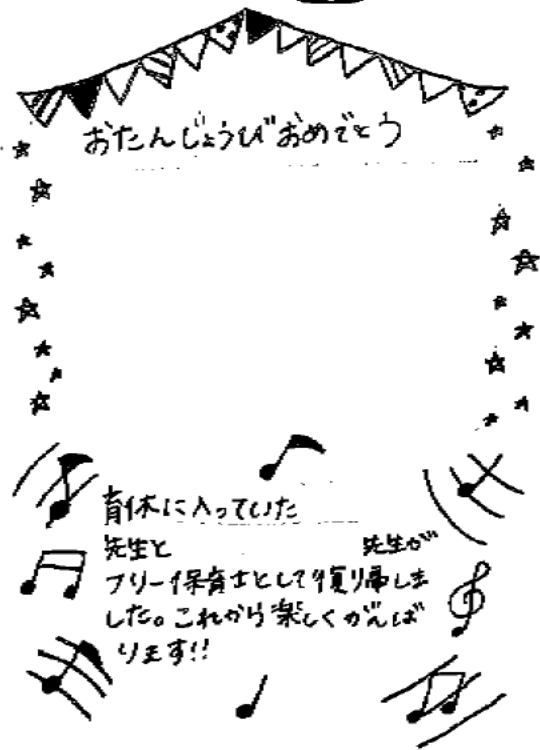 おたんじょうびおめでとう
育休に入っていた
先生と 先生が
フリー保育士として復帰しま
した。これから楽しくがんば
ります!!